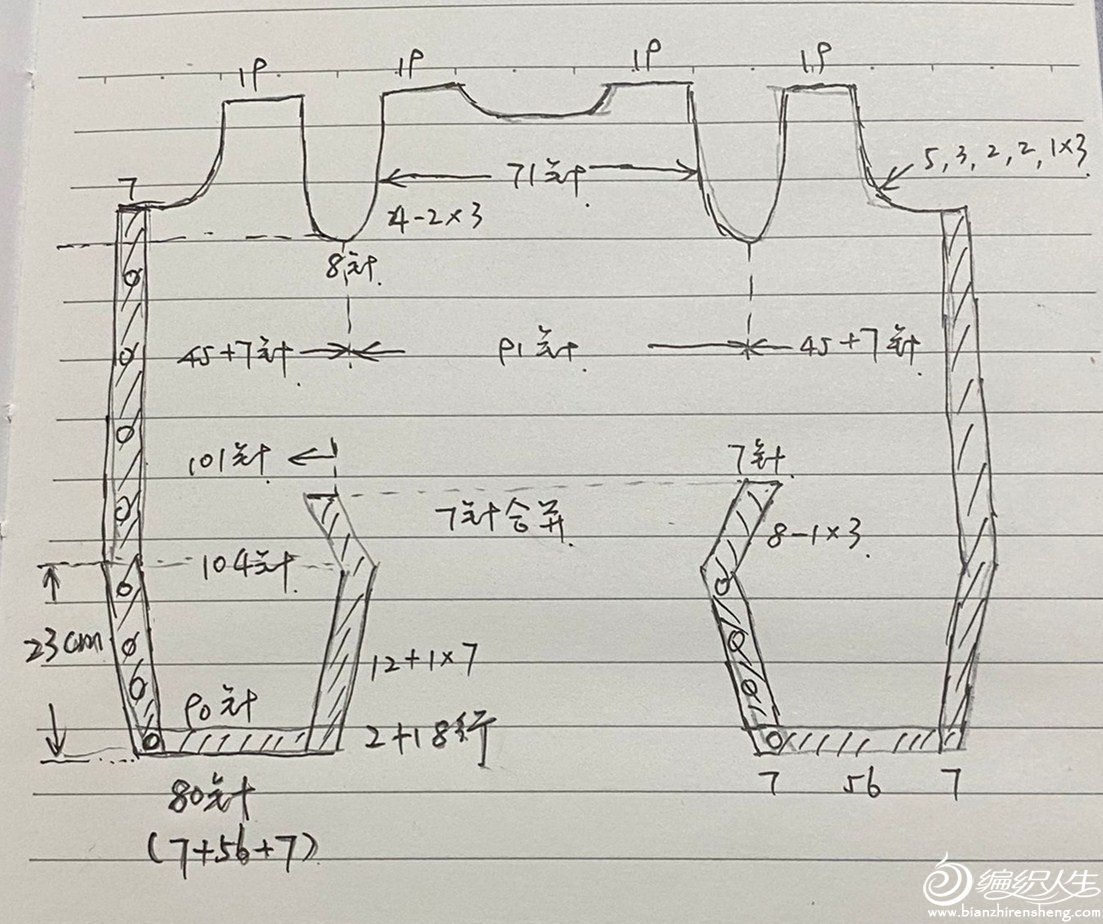 19 19 19 19
5, 3, 2, 2, 1×3
7
71针
4-2×3
8针
45+7针 91针 45+7针
101针 7针
7针合并
8-1×3
104针
23cm
12+1×7
90针
2+18行
80针
7 56 7
(7+56+7)
编织人生
www.bianzhirensheng.com